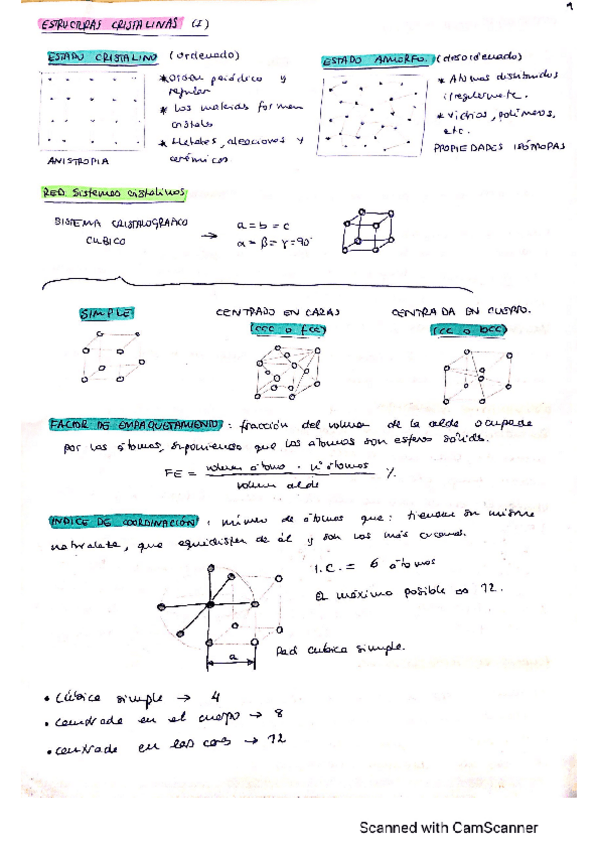 1
ESTRUCTURAS CRISTALINAS (I)
ESTADO CRISTALINO (ordenado)
* Orden periódico y
regular
* Los materiales forman
cristales
* Metales, aleaciones y
cerámicos
ANISTROPIA
ESTADO AMORFO. (desordenado)
* Atomos distribuidos
irregularmente.
* Vidrios, polímeros,
etc.
PROPIEDADES ISÓTROPAS
RED. Sistemas cristalinos
SISTEMA CRISTALOGRAFICO
CUBICO
→
a = b = c
α = β = γ = 90°
SIMPLE
CENTRADO EN CARAS
(ccc o fcc)
CENTRADA EN CUERPO.
(cc o bcc)
FACTOR DE EMPAQUETAMIENTO: fracción del volumen de la celda ocupada
por los átomos, suponiendo que los átomos son esferas sólidas.
FE = volumen átomo · nº átomos / volumen celda %
INDICE DE COORDINACION: número de átomos que: tienen su misma
naturaleza, que equidisten de él y son los más cercanos.
I.C. = 6 átomos
El máximo posible es 12.
a
Red cubica simple.
• Cúbica simple → 4
• centrada en el cuerpo → 8
• centrada en las caras → 12
Scanned with CamScanner